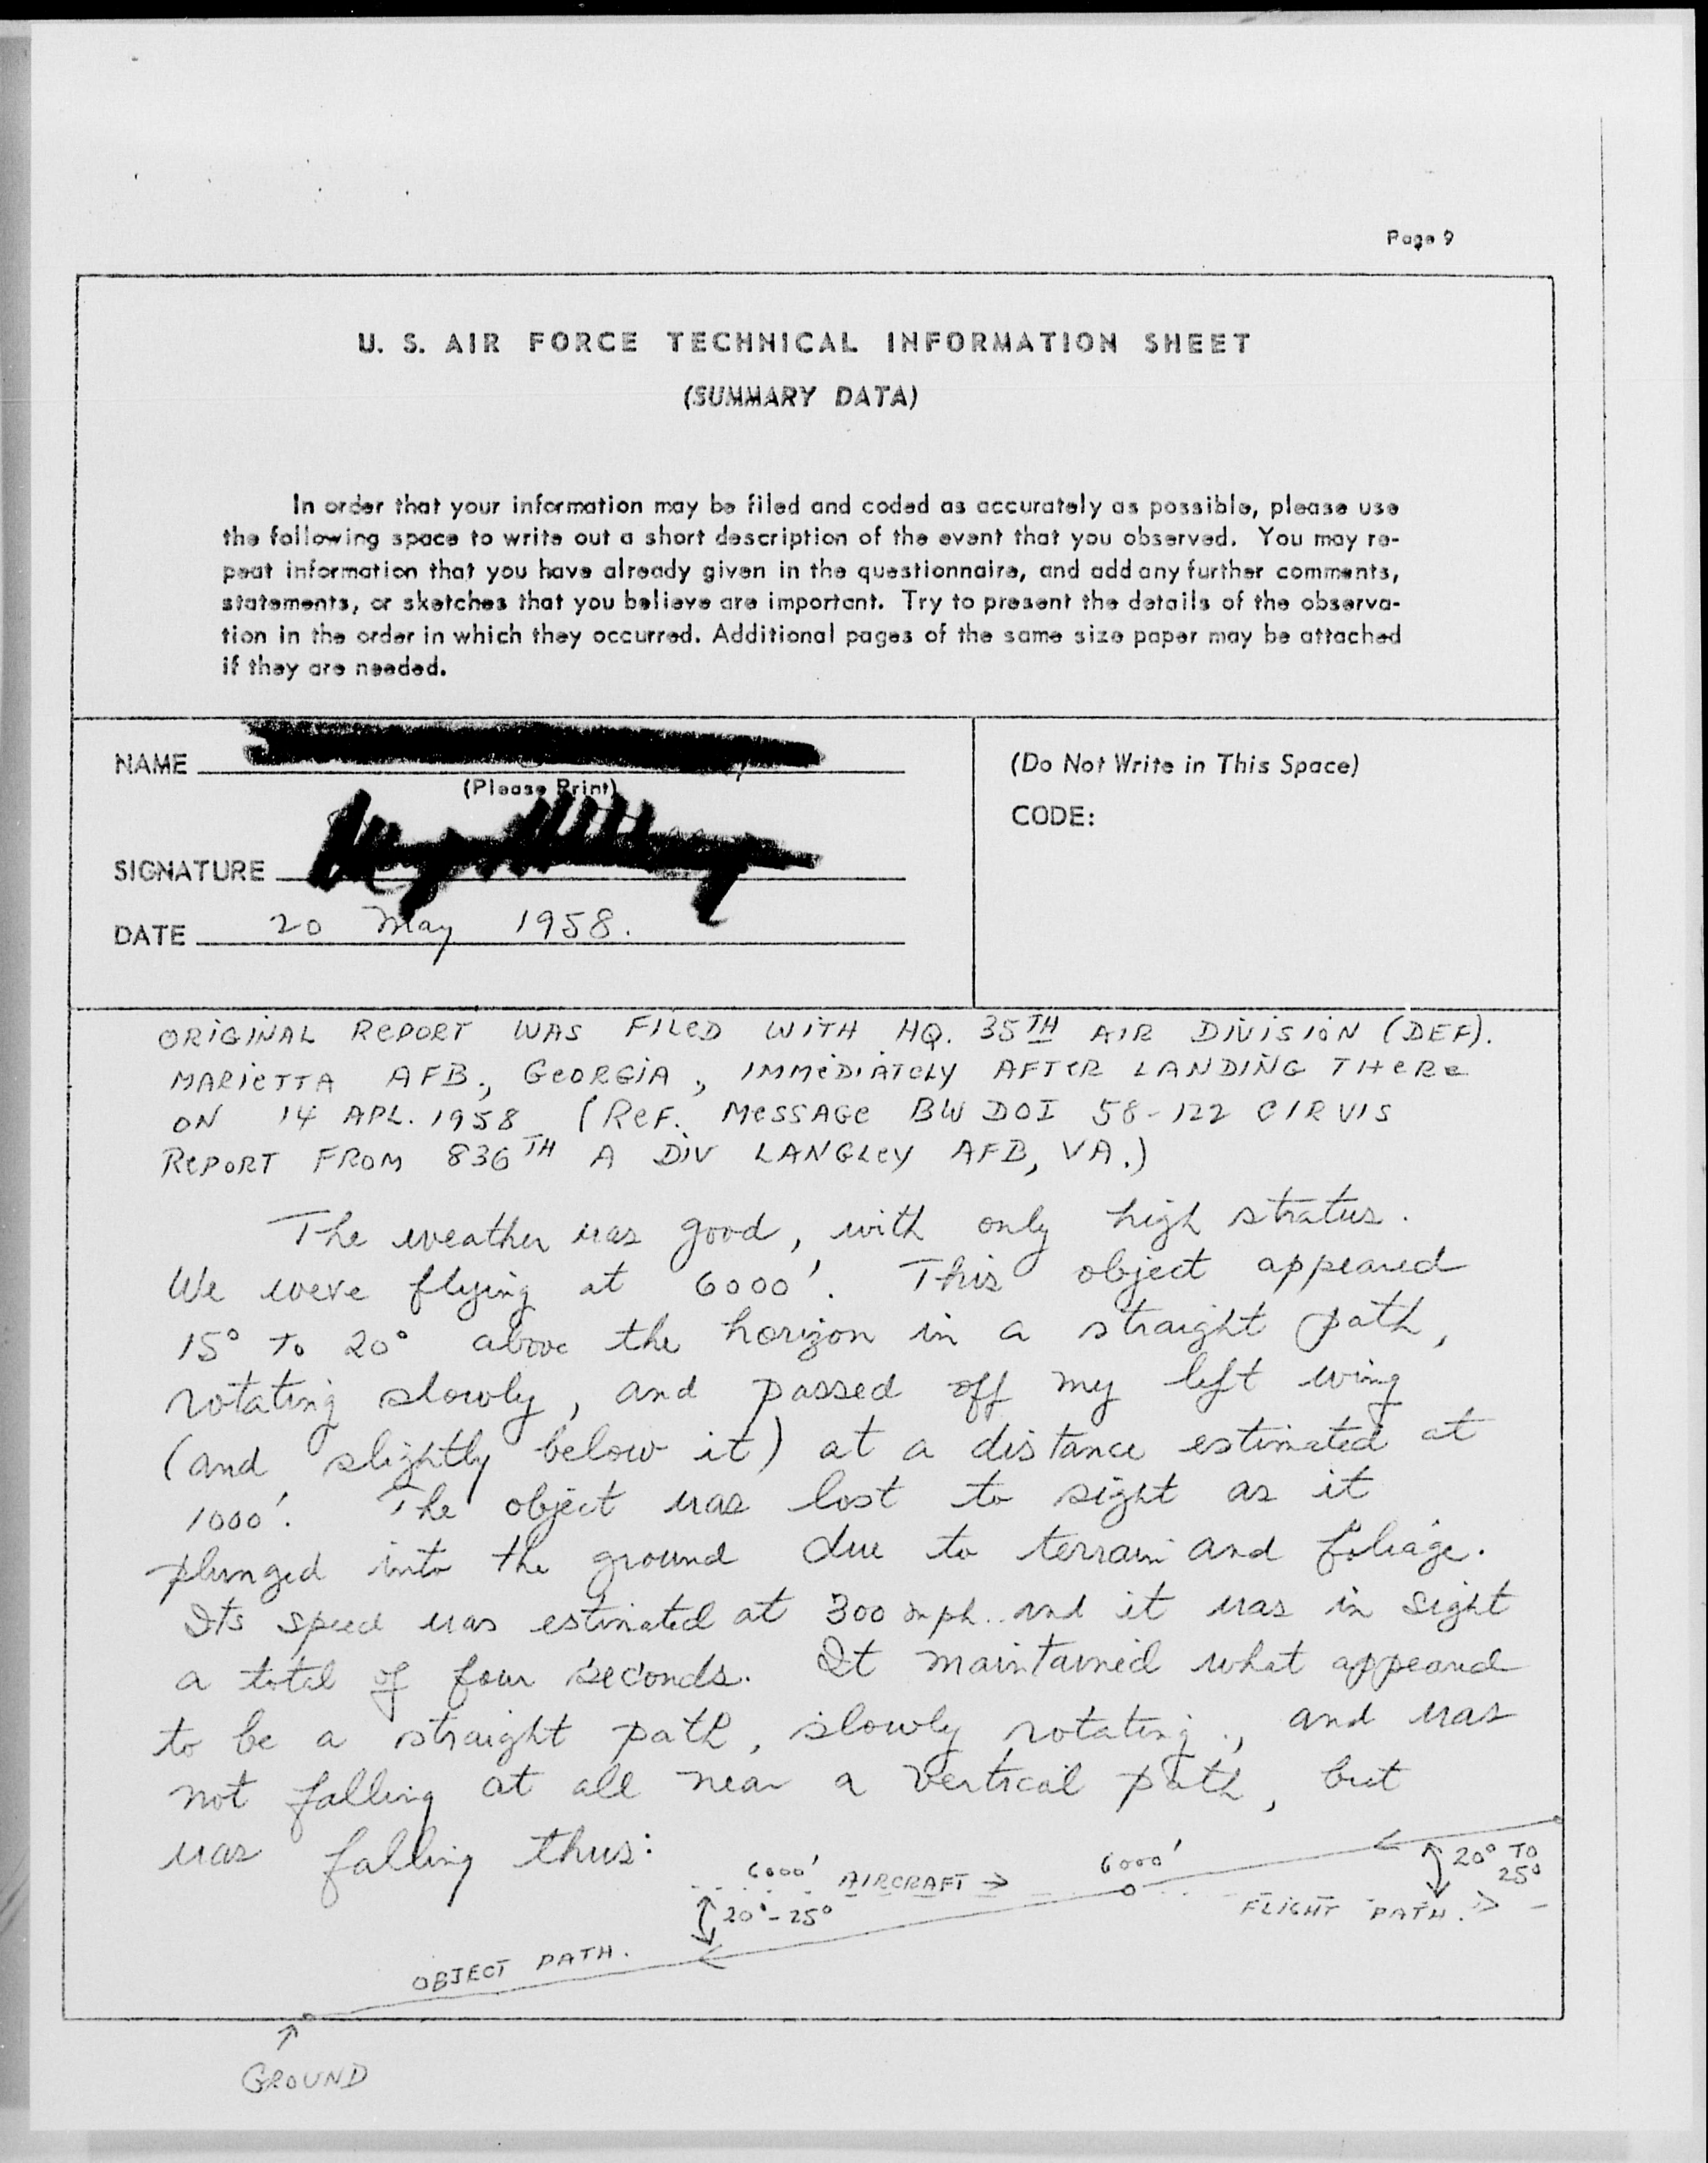 Page 9
U. S. AIR FORCE TECHNICAL INFORMATION SHEET
(SUMMARY DATA)
In order that your information may be filed and coded as accurately as possible, please use
the following space to write out a short description of the event that you observed. You may re-
peat information that you have already given in the questionnaire, and add any further comments,
statements, or sketches that you believe are important. Try to present the details of the observa-
tion in the order in which they occurred. Additional pages of the same size paper may be attached
if they are needed.
NAME
(Please Print)
SIGNATURE
DATE 20 May 1958.
(Do Not Write in This Space)
CODE:
ORIGINAL REPORT WAS FILED WITH HQ. 35TH AIR DIVISION (DEF).
MARIETTA AFB., GEORGIA, IMMEDIATELY AFTER LANDING THERE
ON 14 APL. 1958 (REF. MESSAGE BW DOI 58-122 CIRVIS
REPORT FROM 836TH A DIV LANGLEY AFB, VA.)
The weather was good, with only high stratus.
We were flying at 6000'. This object appeared
15° To 20° above the horizon in a straight path,
rotating slowly, and passed off my left wing
(and slightly below it) at a distance estimated at
1000'. The object was lost to sight as it
plunged into the ground due to terrain and foliage.
Its speed was estimated at 300 mph. and it was in sight
a total of four seconds. It maintained what appeared
to be a straight path, slowly rotating, and was
not falling at all near a vertical path, but
was falling thus:
6000' AIRCRAFT →
6000'
20° TO
25°
20°-25°
FLIGHT PATH. >
OBJECT PATH.
GROUND